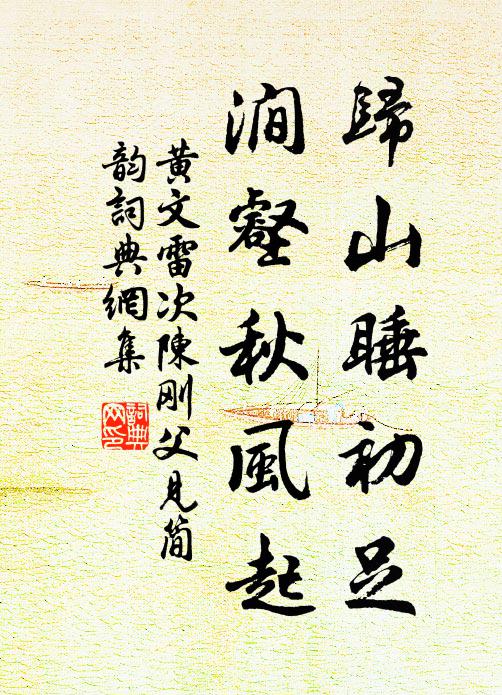 歸山睡初足
澗壑秋風起
黃文雷次陳剛父見簡
韵詞典網集
詞典网印